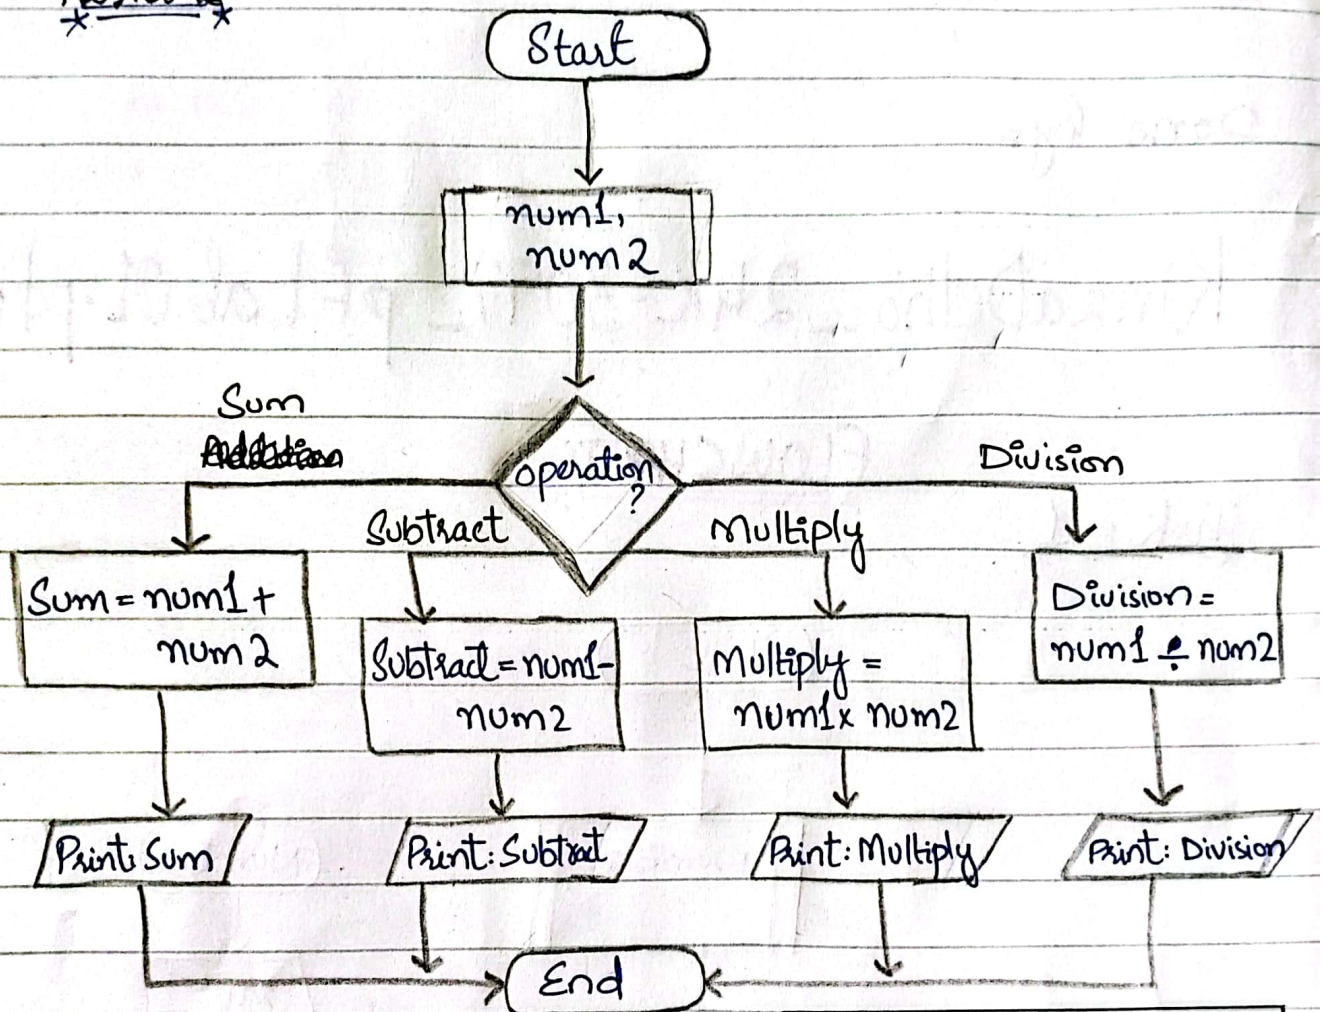 Start
num1,
num2
Sum
operation
?
Division
Subtract
Multiply
Sum = num1 +
num2
Subtract = num1-
num2
Multiply =
num1x num2
Division =
num1 ÷ num2
Print: Sum
Print: Subtract
Print: Multiply
Print: Division
End